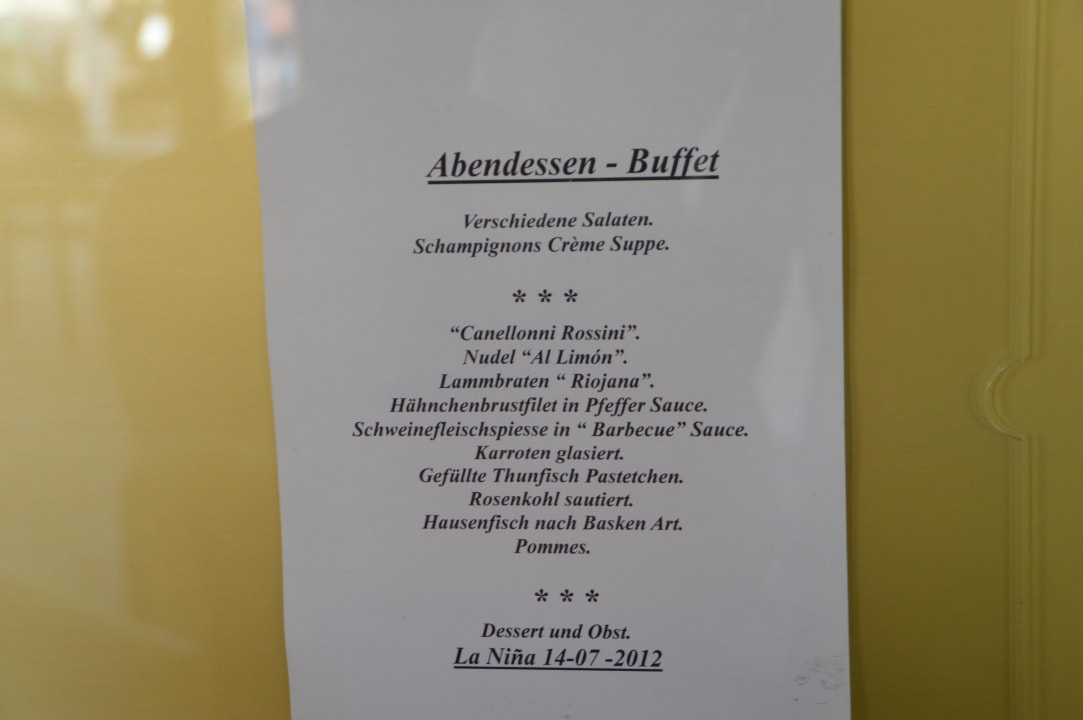 Abendessen - Buffet
Verschiedene Salaten.
Schampignons Crème Suppe.
* * *
“Canellonni Rossini”.
Nudel “Al Limón”.
Lammbraten “ Riojana”.
Hähnchenbrustfilet in Pfeffer Sauce.
Schweinefleischspiesse in “ Barbecue” Sauce.
Karroten glasiert.
Gefüllte Thunfisch Pastetchen.
Rosenkohl sautiert.
Hausenfisch nach Basken Art.
Pommes.
* * *
Dessert und Obst.
La Niña 14-07 -2012